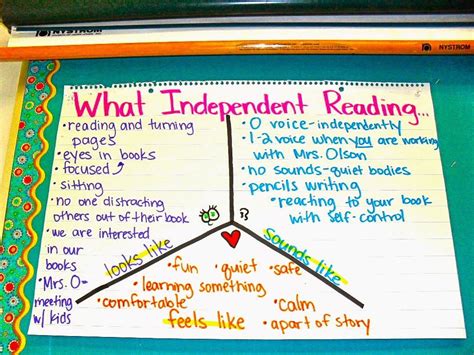 NYSTROM
NYSTROM
What Independent Reading...
• reading and turning
pages
• eyes in books
• focused
• sitting
• no one distracting
others out of their book
• we are interested
in our
books
• Mrs. O-
meeting
w/ kids
looks like
• 0 voice-independently
• 1-2 voice when you are working
with Mrs. Olson
• no sounds-quiet bodies
• pencils writing
• reacting to your book
with self-control
Sounds like
• fun • quiet • safe
• learning something
• comfortable
• calm
• apart of story
feels like